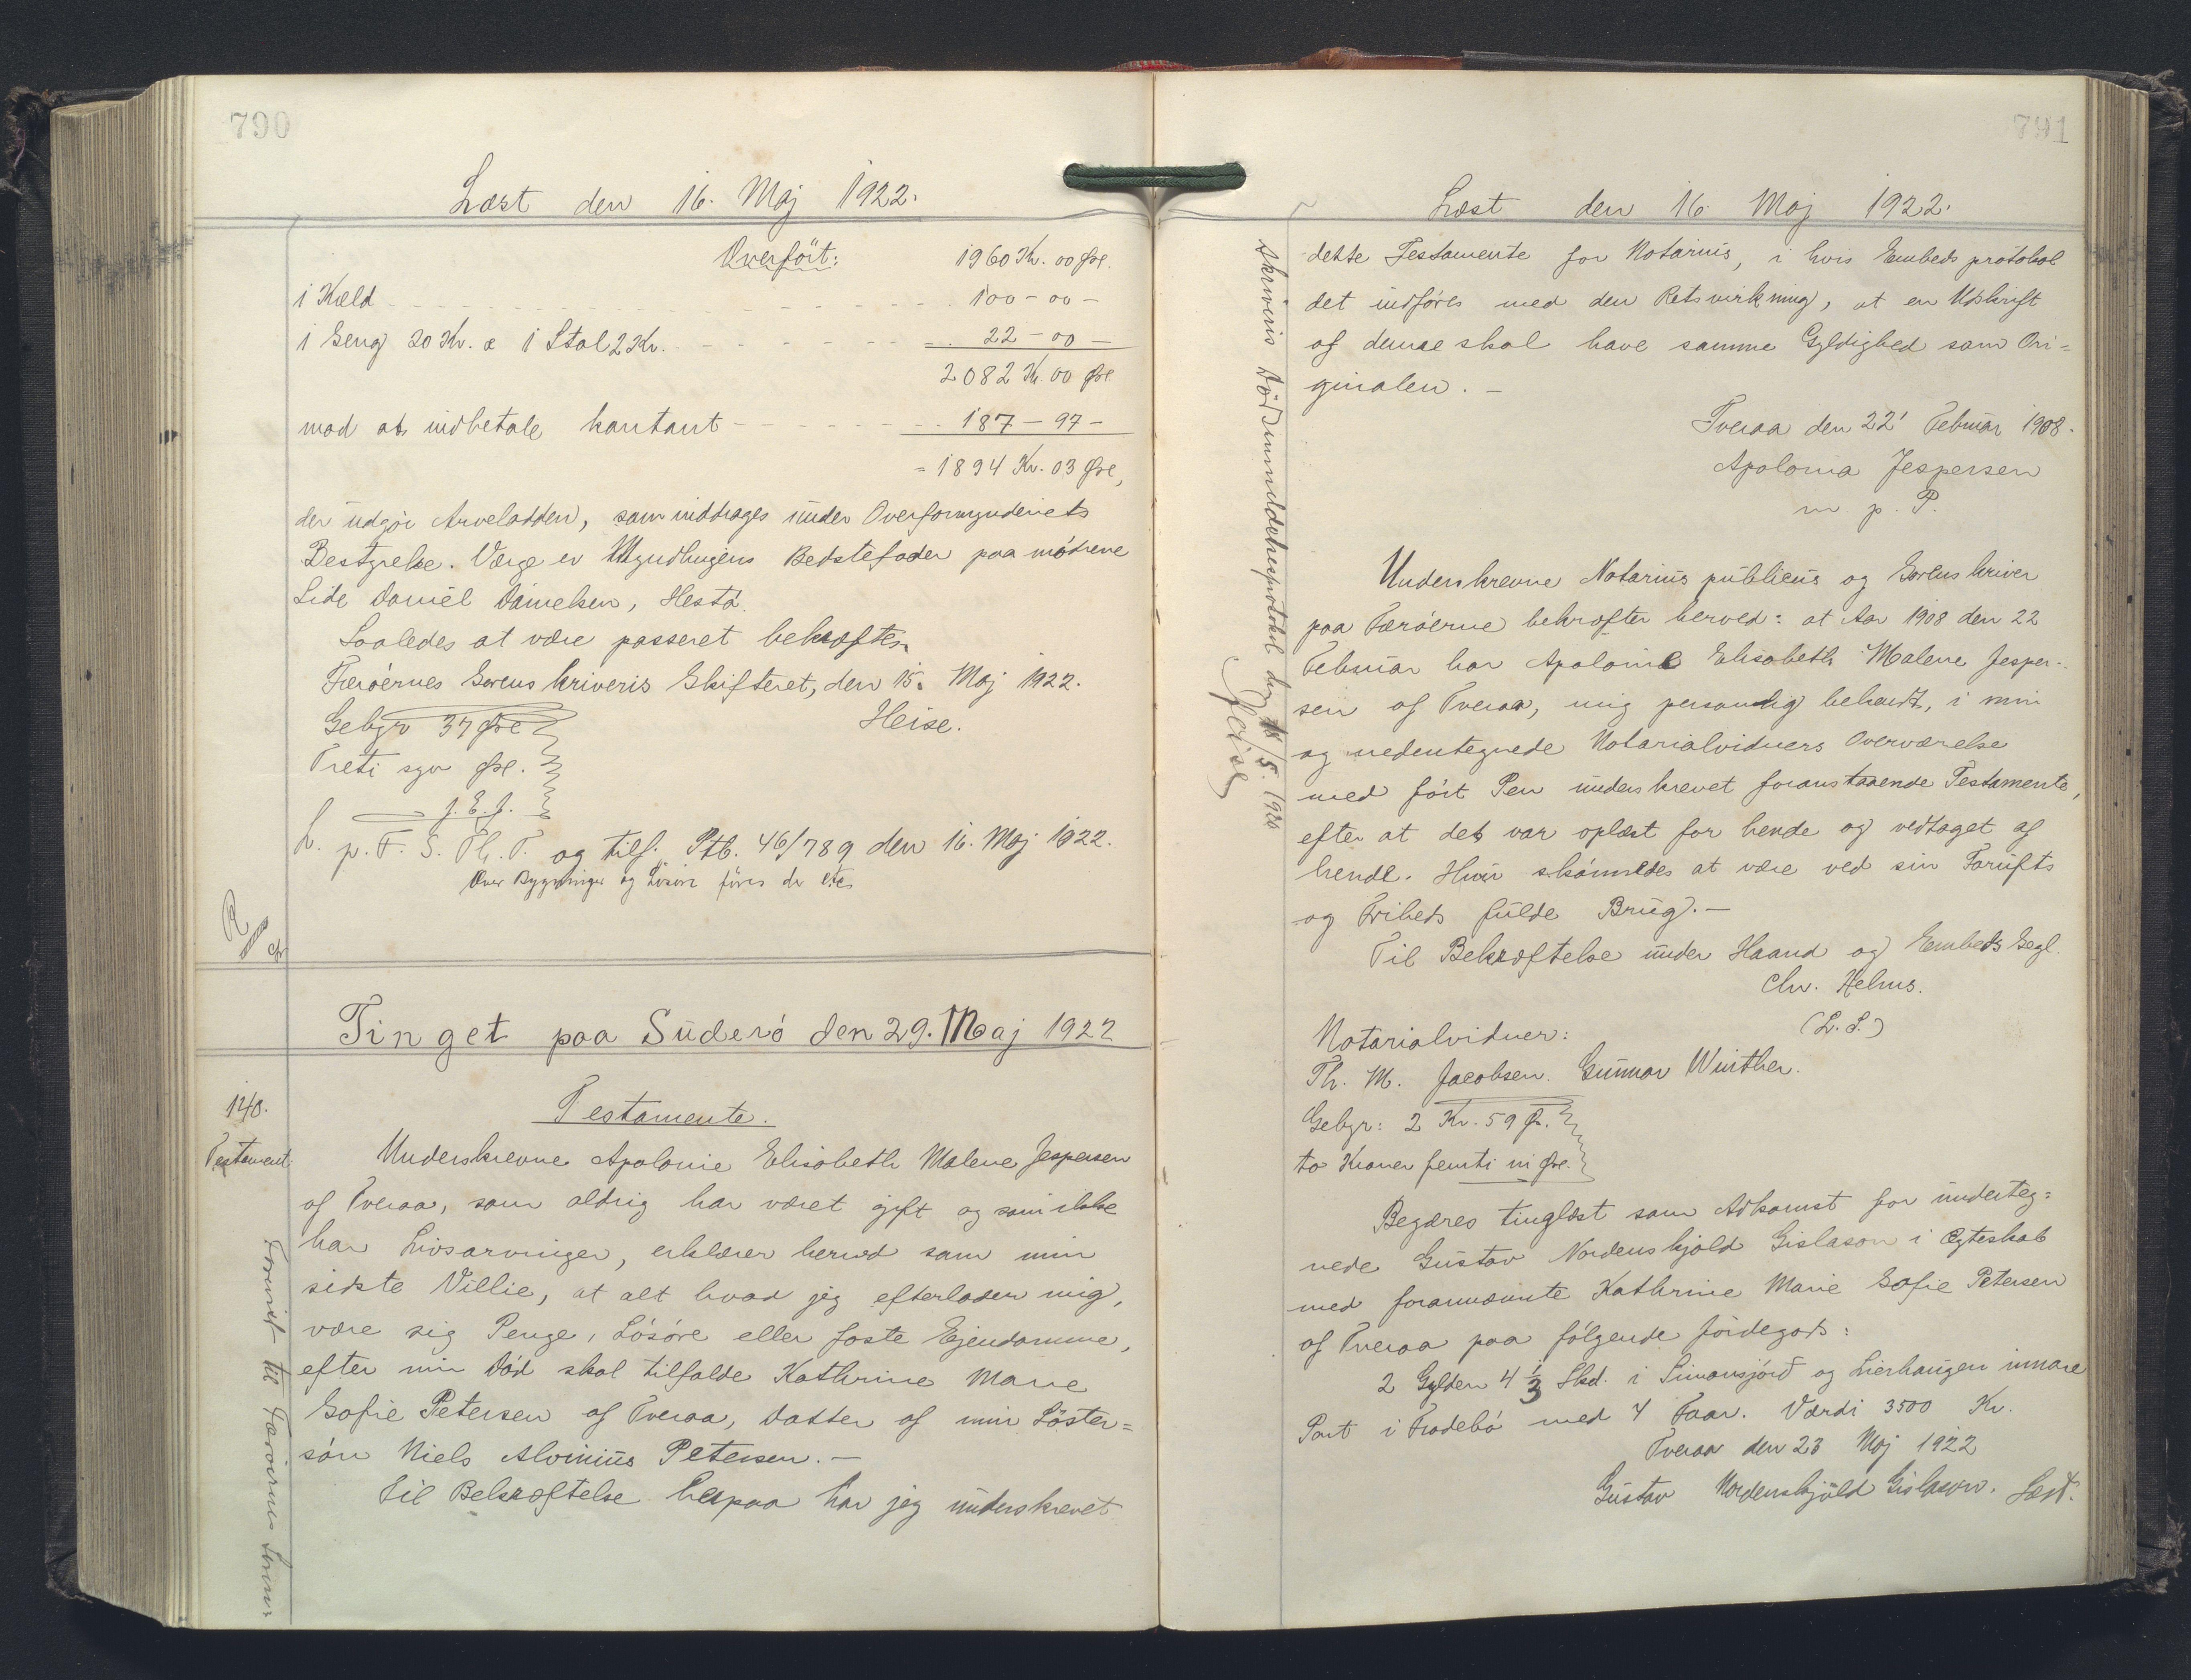 790
Læst den 16. Maj 1922.
Overført: 1960 Kr. 00 Øre.
1 Kæld 100 - 00 -
1 Seng 20 Kr. & 1 Stol 2 Kr. 22 - 00 -
2082 Kr. 00 Øre
mod at indbetale kontant 187 - 97 -
= 1894 Kr. 03 Øre,
der udgør Arvelodden, som inddrages under Overformynderiets
Bestyrelse. Værge er Myndlingens Bedstefader paa mødrene
Side Daniel Danielsen, Hestø.
Saaledes at være passeret bekræftes.
Færøernes Sorenskriveris Skifteret, den 15. Maj 1922.
Gebyr 37 Øre Heise.
Treti syv Øre.
J. E. J.
L. p. F. S. Th. T. og tilf. Ptb. 46/789 den 16. Maj 1922.
Over Bygninger og Løsøre føres der
Tinget paa Suderø den 29. Maj 1922
140.
Testament.
Testamente.
Underskrevne Apolonie Elisabeth Malene Jespersen
af Tveraa, som aldrig har været gift og som ikke
har Livsarvinger, erklærer herved som min
sidste Villie, at alt hvad jeg efterlader mig,
være sig Penge, Løsøre eller faste Ejendomme,
efter min Død skal tilfalde Kathrine Marie
Sofie Petersen af Tveraa, Datter af min Søster=
søn Niels Alvinius Petersen. -
Til Bekræftelse herpaa har jeg underskrevet
Forevist til Færøernes Soren-
791
Læst den 16. Maj 1922.
skriveris Dødsanmeldelsesprotokol den /5. 1920
Heise
dette Testamente for Notarius, i hvis Embedsprotokol
det indføres med den Retsvirkning, at en Udskrift
af denne skal have samme Gyldighed som Ori=
ginalen. -
Tveraa den 22' Februar 1908.
Apolonia Jespersen
m. p. P.
Underskrevne Notarius publicus og Sorenskriver
paa Færøerne bekræfter herved: at Aar 1908 den 22
Februar har Apolonie Elisabeth Malene Jesper-
sen af Tveraa, mig personlig bekendt, i min
og nedentegnede Notarialvidners Overværelse
med ført Pen underskrevet foranstaaende Testamente,
efter at det var oplæst for hende og vedtaget af
hende. Hun skønnedes at være ved sin Fornufts
og Friheds fulde Brug. -
Til Bekræftelse under Haand og Embeds Segl.
Chr. Helms.
Notarialvidner: (L. S.)
Th. M. Jacobsen. Gunnar Winther.
Gebyr: 2 Kr. 59 Ø.
to Kroner femti ni Øre.
Begæres tinglæst som Adkomst for underteg=
nede Gustav Nordenskjold Gislason i Ægteskab
med forannævnte Kathrine Marie Sofie Petersen
af Tveraa paa følgende Jordegods:
2 Gylden 4 1/3 Skd. i Simonsjørd og Lierhaugen innare
Part i Frodebø med 4 Faar. Værdi 3500 Kr.
Tveraa den 23 Maj 1922
Gustav Nordenskjold Gislason. Læst.